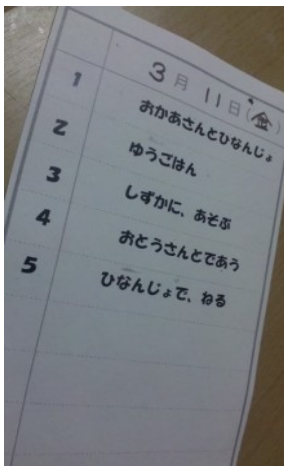 3月 11日(金)
1 おかあさんとひなんじょ
2 ゆうごはん
3 しずかに、あそぶ
4 おとうさんとであう
5 ひなんじょで、ねる